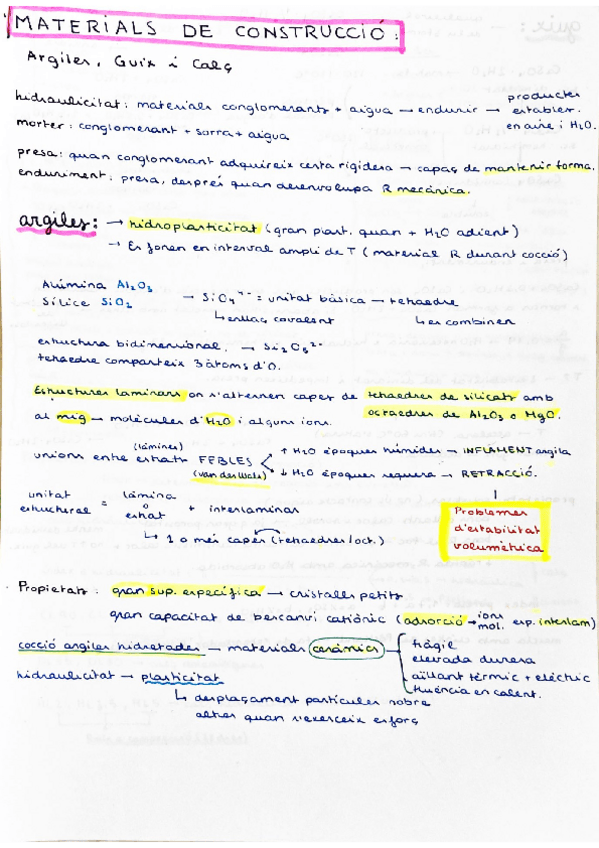 MATERIALS DE CONSTRUCCIÓ:
Argiles, Guix i Calç
hidraulicitat: materials conglomerants + aigua → endurir → productes estables en aire i H2O.
morter: conglomerant + sorra + aigua
presa: quan conglomerant adquireix certa rigidesa → capaç de mantenir forma.
enduriment: presa, després quan desenvolupa R mecànica.
argiles: → hidroplasticitat (gran plast. quan + H2O adient)
→ Es fonen en interval ampli de T (material R durant cocció)
Alúmina Al2O3
Sílice SiO2 → SiO4⁴⁻ = unitat bàsica → tetraedre
↳ enllaç covalent ↳ es combinen
estructura bidimensional. → Si2O5²⁻
tetraedre comparteix 3 àtoms d'O.
Estructures laminars on s'alternen capes de tetraedres de silicats amb
octaedres de Al2O3 o MgO.
al mig → molècules d'H2O i alguns ions.
(làmines) ↑ H2O èpoques húmides → INFLAMENT argila
unions entre estrats FEBLES
(van der Wals) ↓ H2O èpoques sequera → RETRACCIÓ.
unitat estructural = làmina o estrat + interlaminar
↳ 1 o més capes (tetraedres/oct.)
Problemes
d'estabilitat
volumètrica
· Propietats: gran sup. específica → cristalls petits
gran capacitat de bescanvi catiònic (adsorció → ions mol. esp. interlam)
cocció argiles hidratades → materials ceràmics
fràgil
elevada duresa
aïllant tèrmic + elèctric
fluència en calent.
hidraulicitat → plasticitat
↳ desplaçament partícules sobre
altres quan s'exerceix esforç